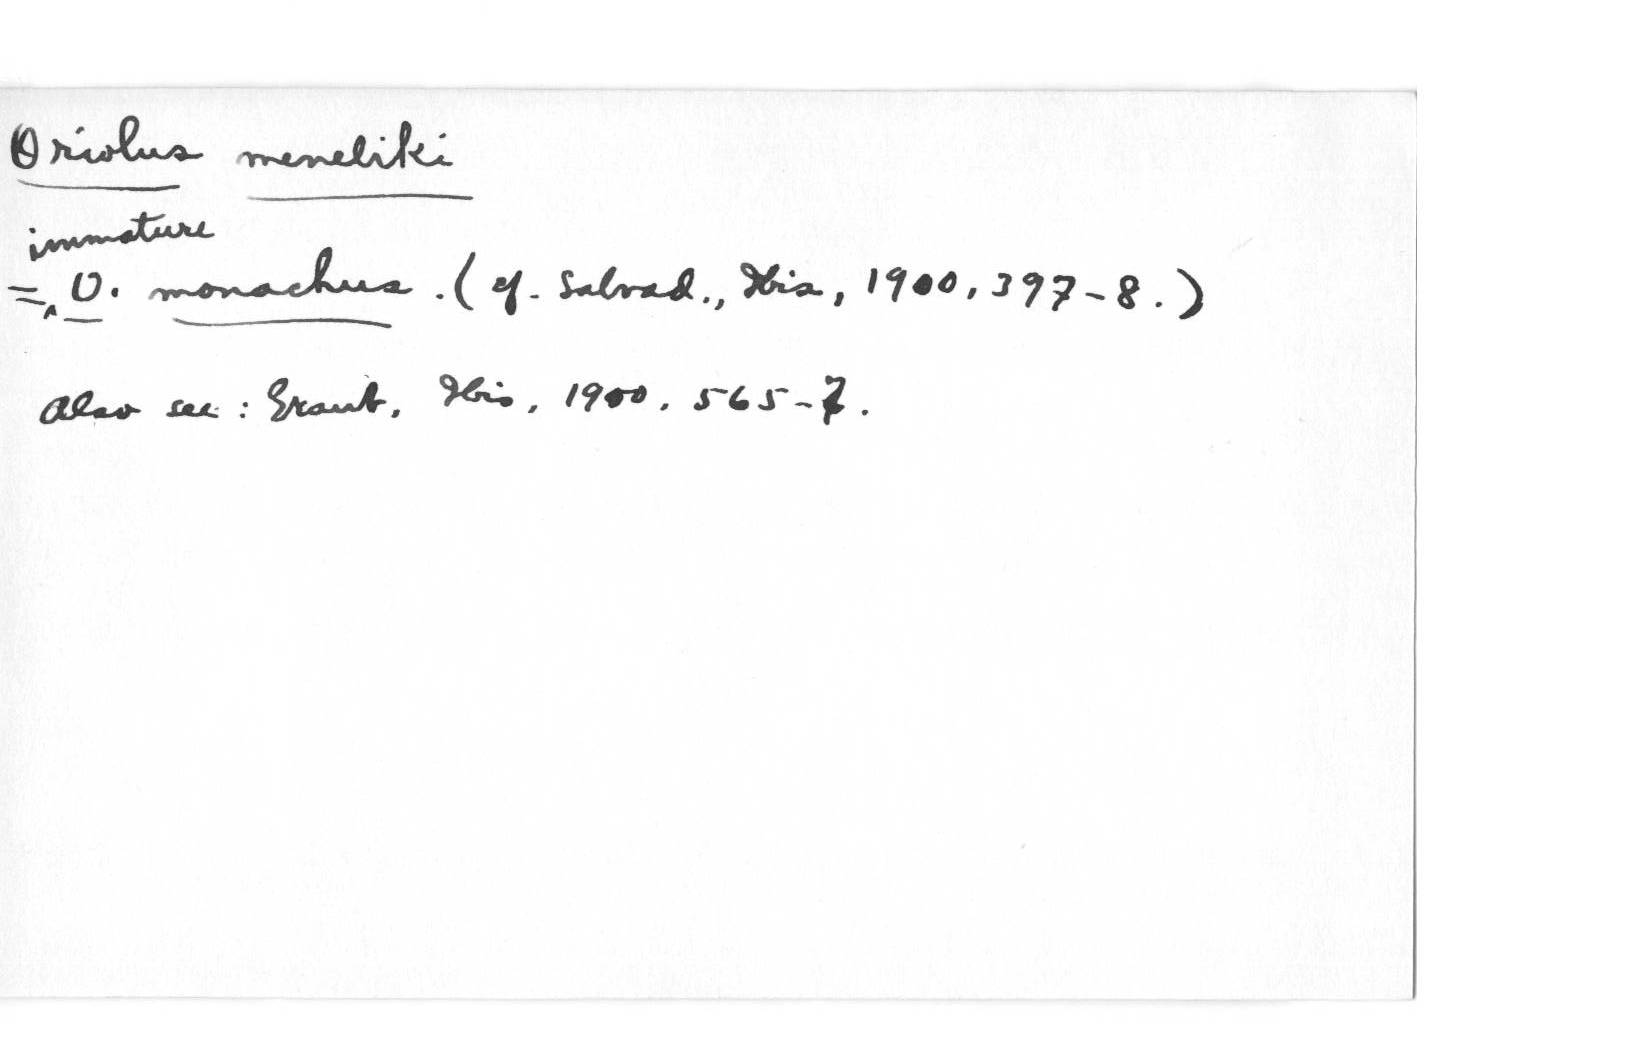 Oriolus meneliki
immature
=‸ O. monachus. (cf. Salvad., Ibis, 1900, 397-8.)
Also see: Grant, Ibis, 1900, 565-7.